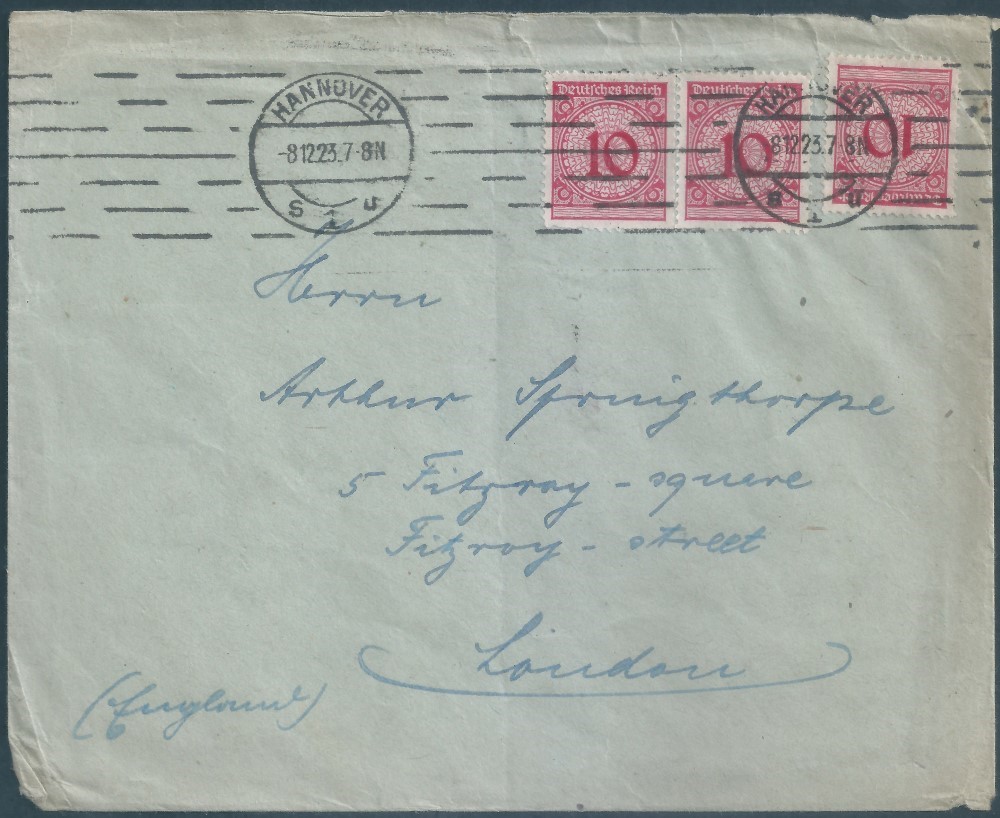 HANNOVER
-8.12.23.7-8N
s 1 u
Deutsches Reich
10
Deutsches Reich
10
HANNOVER
-8.12.23.7-8N
s 1 u
10
Deutsches Reich
Herrn
Arthur Springthorpe
5 Fitzroy - square
Fitzroy - street
London
(England)